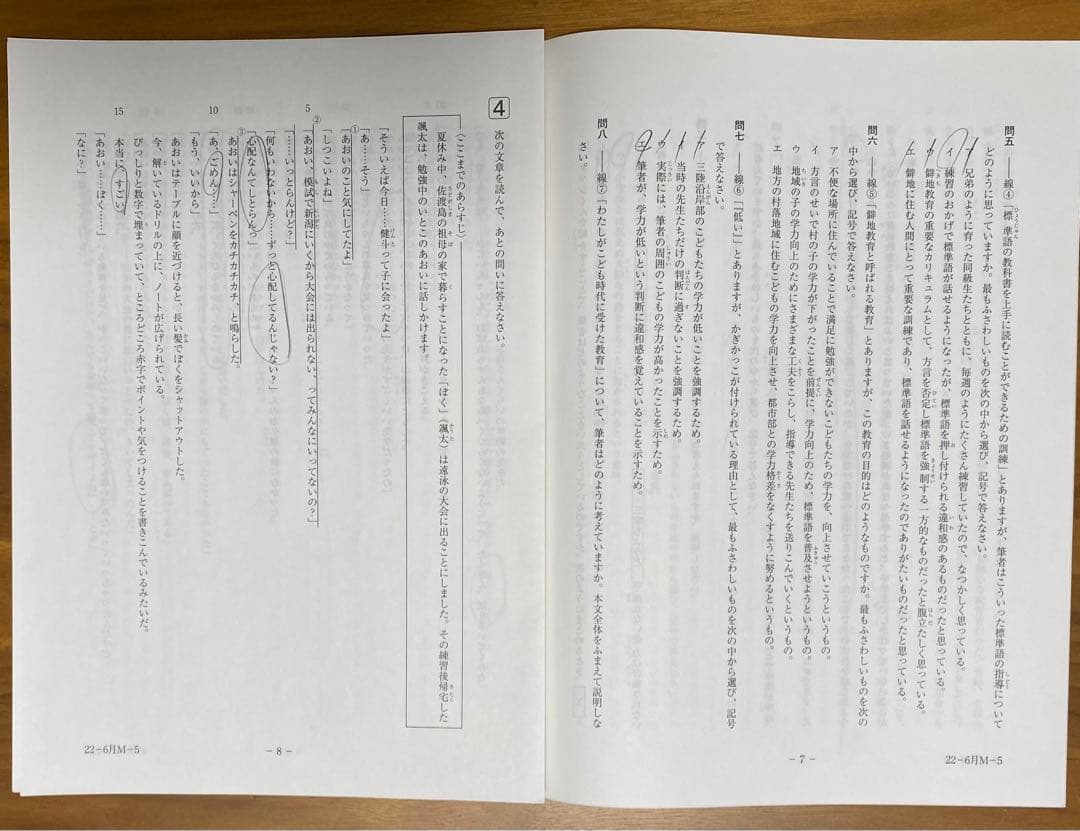 問五 ――線④「標準語の教科書を上手に読むことができるための訓練」とありますが、筆者はこういった標準語の指導について
どのように思っていますか。最もふさわしいものを次の中から選び、記号で答えなさい。
ア 兄弟のように育った同級生たちとともに、毎週のようにたくさん練習していたので、なつかしく思っている。
イ 練習のおかげで標準語が話せるようになったが、標準語を押し付けられる違和感のあるものだったと思っている。
ウ 僻地教育の重要なカリキュラムとして、方言を否定し標準語を強制する一方的なものだったと腹立たしく思っている。
エ 僻地に住む人間にとって重要な訓練であり、標準語を話せるようになったのでありがたいものだったと思っている。
問六 ――線⑤「僻地教育と呼ばれる教育」とありますが、この教育の目的はどのようなものですか。最もふさわしいものを次の
中から選び、記号で答えなさい。
ア 不便な場所に住んでいることで満足に勉強ができないこどもたちの学力を、向上させていこうというもの。
イ 方言のせいで村の子の学力が下がったことを前提に、学力向上のため、標準語を普及させようというもの。
ウ 地域の子の学力向上のためにさまざまな工夫をこらし、指導できる先生たちを送りこんでいくというもの。
エ 地方の村落地域に住むこどもの学力を向上させ、都市部との学力格差をなくすように努めるというもの。
問七 ――線⑥「「低い」」とありますが、かぎかっこが付けられている理由として、最もふさわしいものを次の中から選び、記号
で答えなさい。
ア 三陸沿岸部のこどもたちの学力が低いことを強調するため。
イ 当時の先生たちだけの判断に過ぎないことを強調するため。
ウ 実際には、筆者の周囲のこどもの学力が高かったことを示すため。
エ 筆者が、学力が低いという判断に違和感を覚えていることを示すため。
問八 ――線⑦「わたしがこども時代に受けた教育」について、筆者はどのように考えていますか。本文全体をふまえて説明しな
さい。
－7－
22－6月M－5
4 次の文章を読んで、あとの問いに答えなさい。
〈ここまでのあらすじ〉
夏休み中、佐渡島の祖母の家で暮らすことになった「ぼく」（颯太）は遠泳の大会に出ることにしました。その練習後帰宅した
颯太は、勉強中のいとこのあおいに話しかけます。
「そういえば今日……健斗って子に会ったよ」
「あ……そう」
①「あおいのこと気にしてたよ」
「しつこいよね」
5 ②「あおい、模試で新潟にいくから大会には出られない、ってみんなにいってないの？」
「……いっとらんけど？」
「何もいわないから……ずっと心配してるんじゃない？」
「心配なんてしとらんっ」
③あおいはシャーペンをカチカチカチ、と鳴らした。
10 「あ、ごめん……」
「もう、いいから」
あおいはテーブルに顔を近づけると、長い髪でぼくをシャットアウトした。
今、解いているドリルの上に、ノートが広げられている。
びっしりと数字で埋まっていて、ところどころ赤字でポイントや気をつけることを書きこんでいるみたいだ。
15 本当に、すごい。
「あおい……ぼく……」
「なに？」
－8－
22－6月M－5